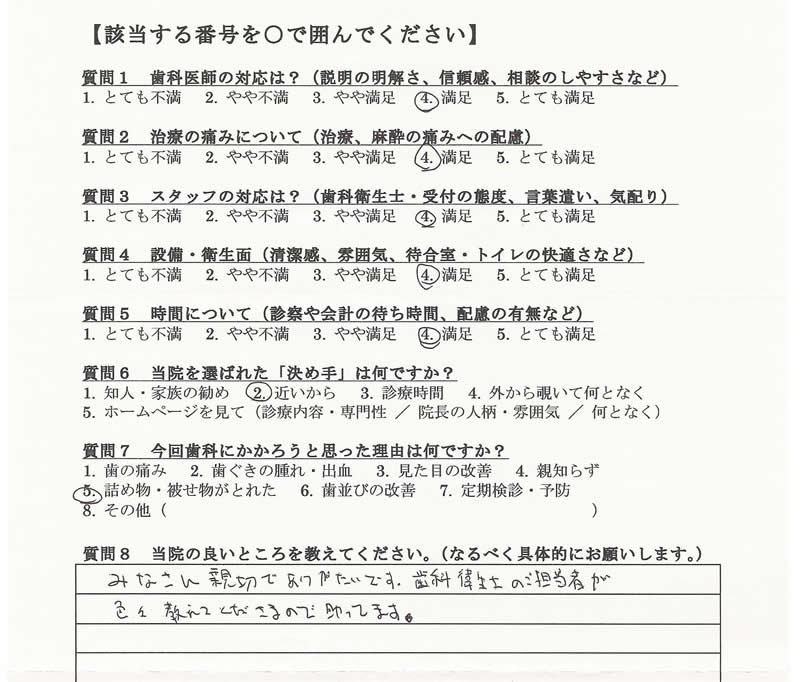 【該当する番号を○で囲んでください】
質問1 歯科医師の対応は？（説明の明解さ、信頼感、相談のしやすさなど）
1. とても不満 2. やや不満 3. やや満足 4. 満足 5. とても満足
質問2 治療の痛みについて（治療、麻酔の痛みへの配慮）
1. とても不満 2. やや不満 3. やや満足 4. 満足 5. とても満足
質問3 スタッフの対応は？（歯科衛生士・受付の態度、言葉遣い、気配り）
1. とても不満 2. やや不満 3. やや満足 4. 満足 5. とても満足
質問4 設備・衛生面（清潔感、雰囲気、待合室・トイレの快適さなど）
1. とても不満 2. やや不満 3. やや満足 4. 満足 5. とても満足
質問5 時間について（診察や会計の待ち時間、配慮の有無など）
1. とても不満 2. やや不満 3. やや満足 4. 満足 5. とても満足
質問6 当院を選ばれた「決め手」は何ですか？
1. 知人・家族の勧め 2. 近いから 3. 診療時間 4. 外から覗いて何となく
5. ホームページを見て（診療内容・専門性 ／ 院長の人柄・雰囲気 ／ 何となく）
質問7 今回歯科にかかろうと思った理由は何ですか？
1. 歯の痛み 2. 歯ぐきの腫れ・出血 3. 見た目の改善 4. 親知らず
5. 詰め物・被せ物がとれた 6. 歯並びの改善 7. 定期検診・予防
8. その他（ ）
質問8 当院の良いところを教えてください。（なるべく具体的にお願いします。）
みなさん親切でありがたいです。歯科衛生士のご担当者が
色々教えてくださるので助ってます。